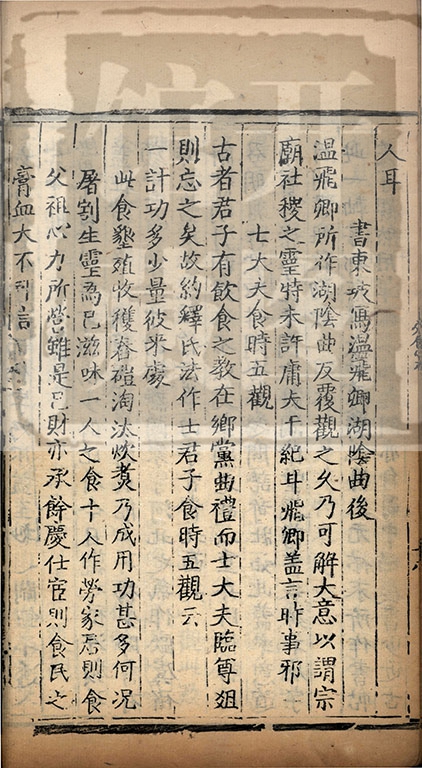 人耳
書東坡寫温飛卿湖陰曲後
温飛卿所作湖陰曲反覆觀之久乃可解大意以謂宗
廟社稷之靈特未許庸夫干紀耳飛卿盖言昨事邪
士大夫食時五觀
古者君子有飲食之教在鄉黨曲禮而士大夫臨尊俎
則忘之矣故約釋氏法作士君子食時五觀云
一計功多少量彼來處
此食墾殖收穫舂磑淘汰炊煮乃成用功甚多何况
屠割生靈為己滋味一人之食十人作勞家居則食
父祖心力所營雖是己財亦承餘慶仕宦則食民之
膏血大不可言